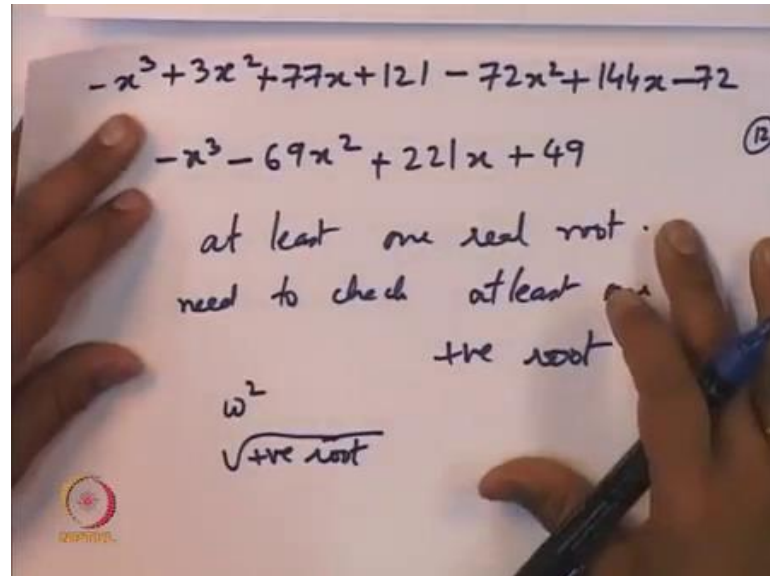 -x³ + 3x² + 77x + 121 - 72x² + 144x - 72
12
-x³ - 69x² + 221x + 49
at least one real root.
need to check atleast
+ve root
ω²
√+ve root